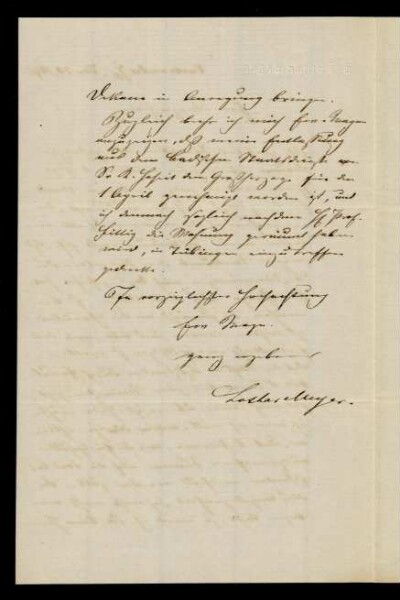 Dekans in Anregung bringen.
Zugleich beehre ich mich Ew. Magn.
anzuzeigen, daß meine Entlassung
aus dem Badischen Staatsdienste von
Sr. K. Hoheit dem Großherzoge für den
1 April genehmigt worden ist, und
ich demnach sogleich nachdem H. Prof.
Hüfner die Wohnung geräumt haben
wird, in Tübingen einzutreffen
gedenke.
vorzüglichster Hochachtung
Ew. Magn.
ganz ergebener
Lothar Meyer.